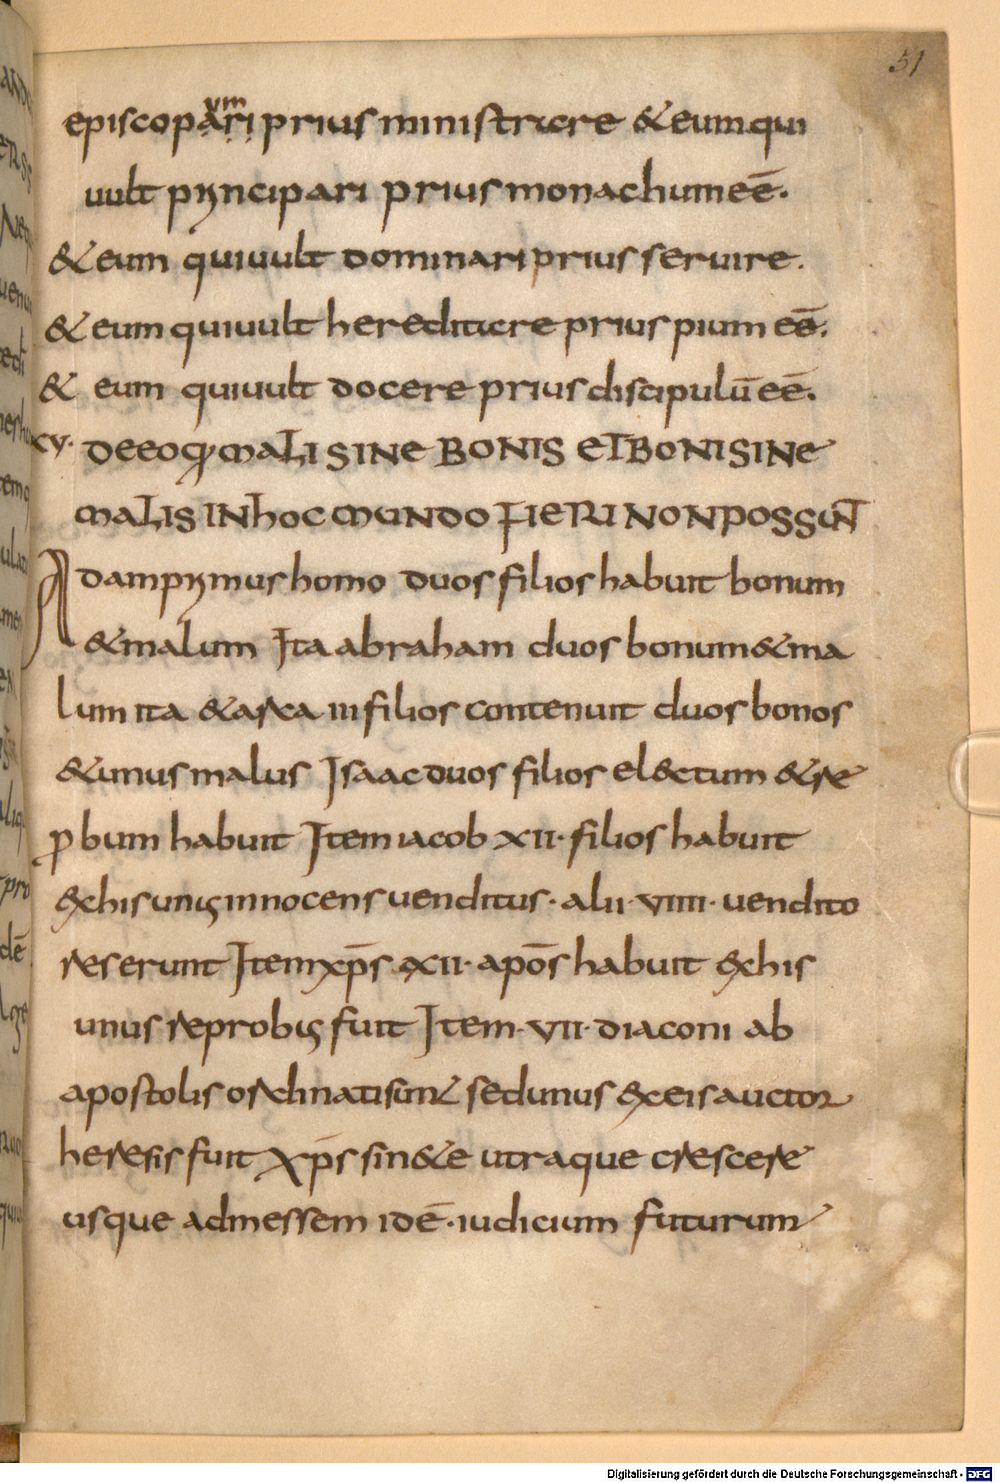 51
episcopari prius ministrare & eum qui
vm
uult pryncipari prius monachum eē.
& eum qui uult dominari prius seruire.
& eum qui uult hereditare prius pium eē.
& eum qui uult docere prius discipulū eē.
xv. DE EO Qđ MALI SINE BONIS ET BONI SINE
MALIS IN hOC MUNDO FIERI NON POSSUNT
Adam prymus homo duos filios habuit bonum
& malum Ita abraham duos bonum & ma
lum ita & arca III filios contenuit duos bonos
& unus malus Isaac duos filios el&ctum & re
ꝓbum habuit Item iacob XII. filios habuit
ex his unus innocens uenditus. alii. VIIII. uendito
res erunt Item xp̄s XII. apōs habuit ex his
unus reprobus fuit Item. VII. diaconi ab
apostolis ordinati sunt sed unus ex eis auctor
heresis fuit Xp̄s sin&e utraque crescere
usque ad messem idē. iudicium futurum
Digitalisierung gefördert durch die Deutsche Forschungsgemeinschaft - DFG